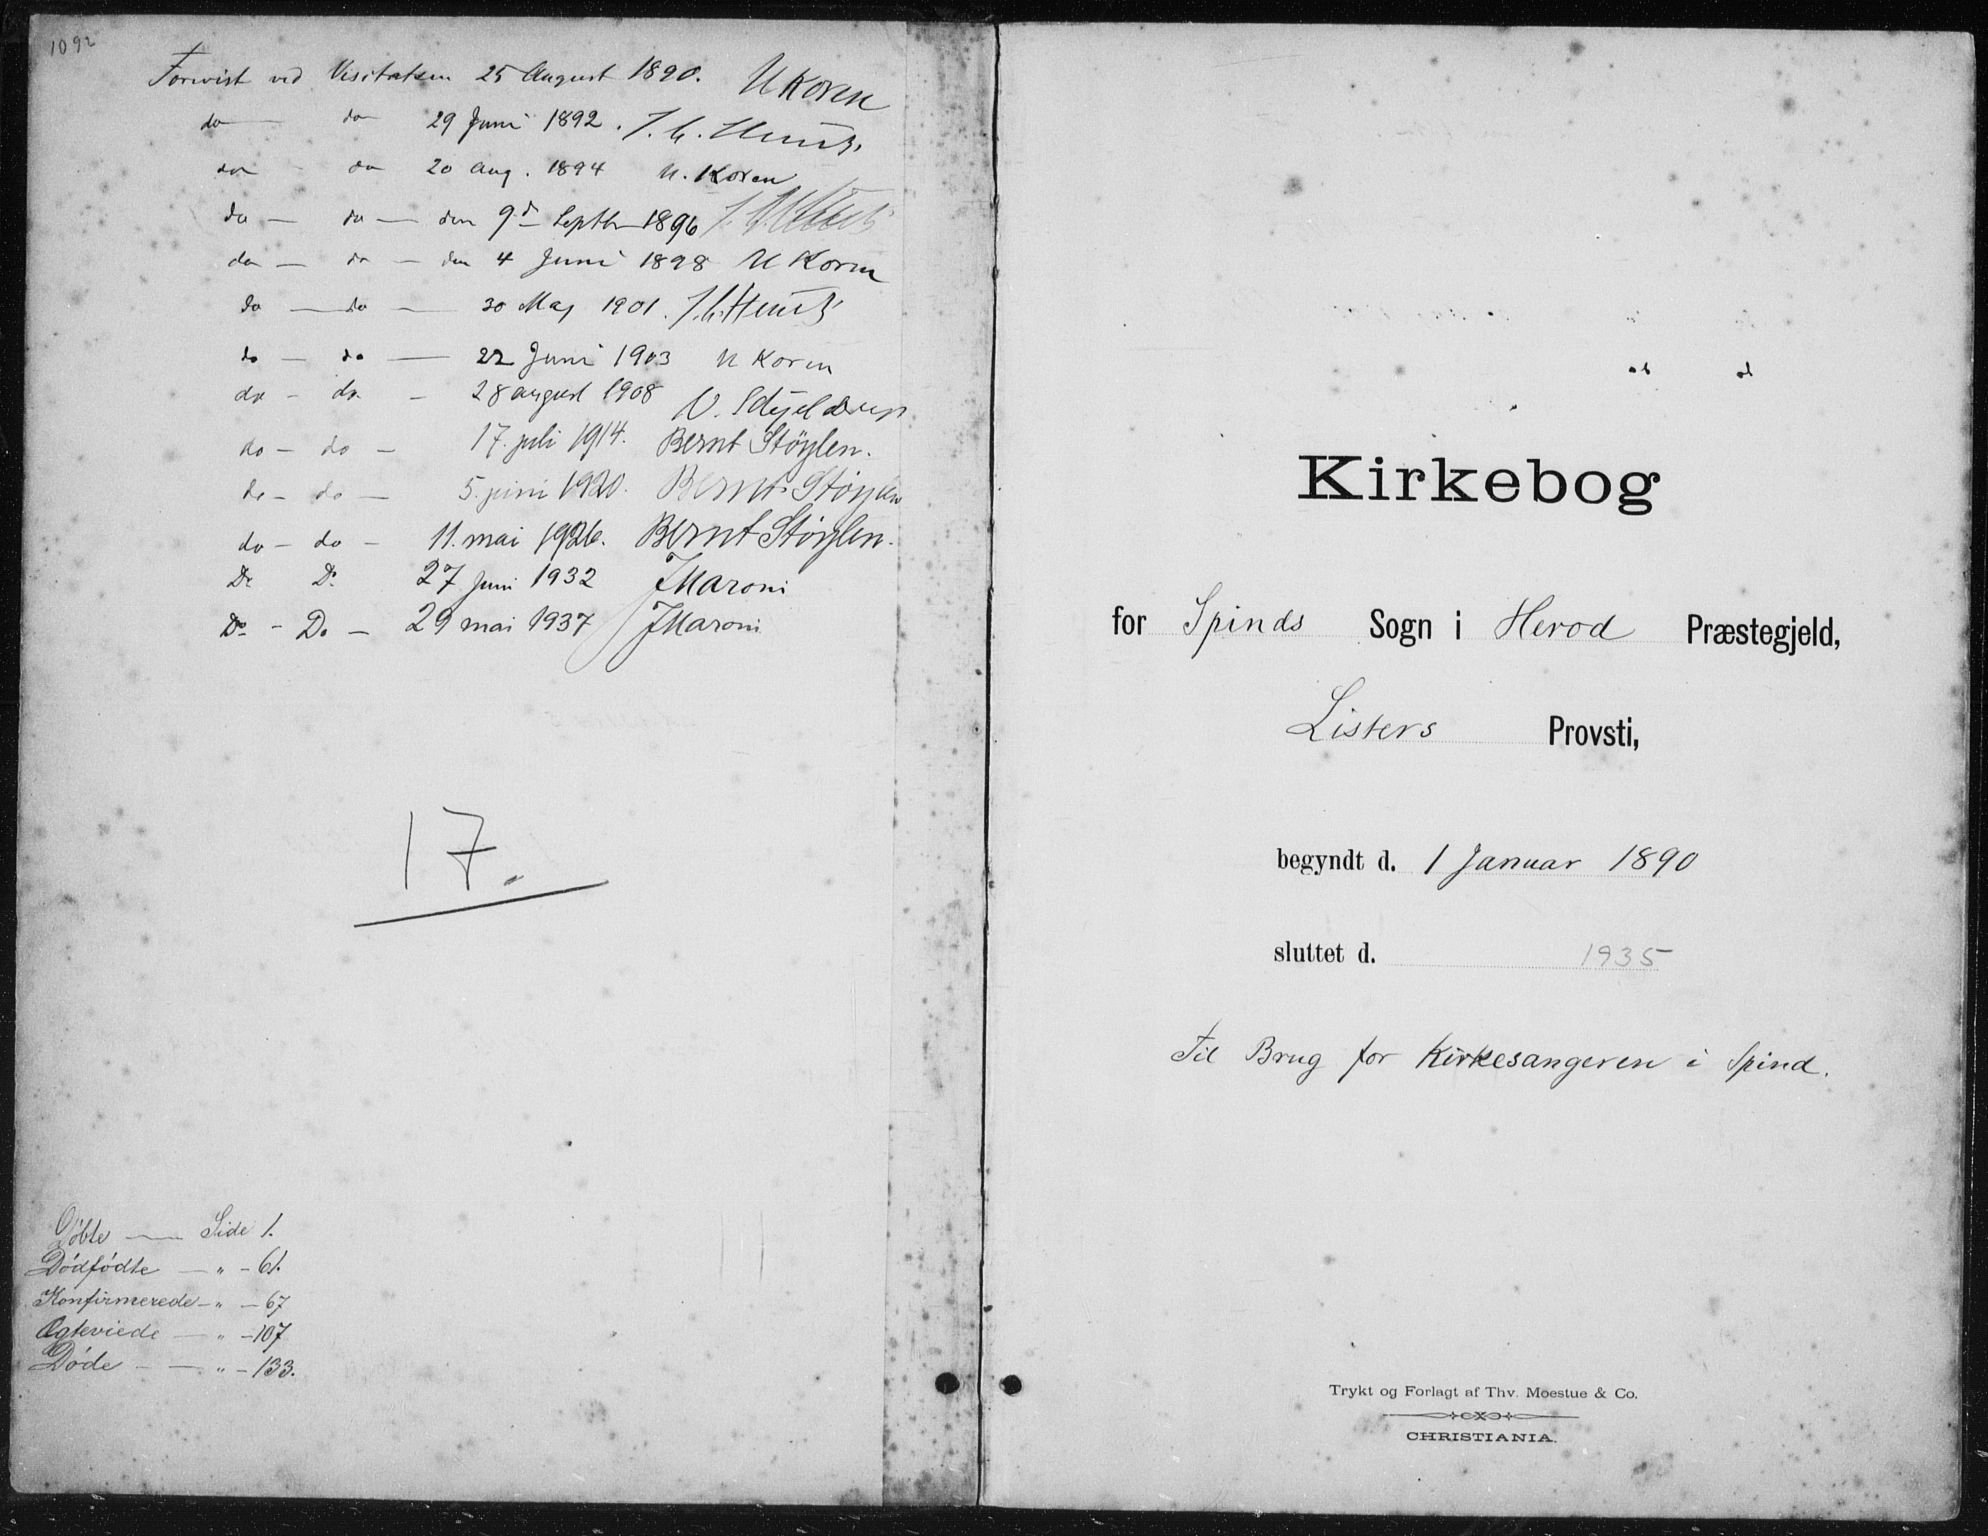 1092
Forevist ved Visitatsen 25 August 1890. U Koren
do — do 29 Juni 1892. J. C. Heuch
do - do 20 aug. 1894 U. Koren
do — do — den 9de Septbr 1896 J. C. Heuch
do — do — den 4 Juni 1898 U Koren
do — do — 30 Maj 1901. J. C. Heuch
do — do — 22 Juni 1903 U Koren
do - do - 28 august 1908 V. Schjelderup
do - do - 17. juli 1914. Bernt Støylen.
do - do - 5. juni 1920. Bernt Støylen
do - do - 11. mai 1926. Bernt Støylen.
Do Do 27 Juni 1932 J Maroni
Do - Do - 29 mai 1937 J Maroni
17.
Døbte — Side 1.
Dødfødte — " - 61.
Konfirmerede - " - 67
Ægteviede — " - 107
Døde - — " - 133.
Kirkebog
for Spinds Sogn i Herod Præstegjeld,
Listers Provsti,
begyndt d. 1 Januar 1890
sluttet d. 1935
Til Brug for Kirkesangeren i Spind.
Trykt og Forlagt af Thv. Moestue & Co.
CHRISTIANIA.